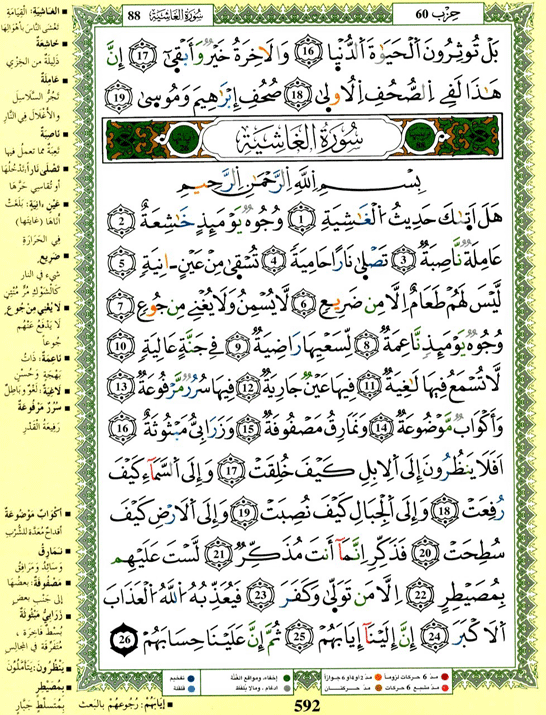 حِزْب 60
سُورَةُ الغَاشِيَة
88
بَلْ تُوثِرُونَ اَ۬لْحَيَوٰةَ اَ۬لدُّنْي۪ا 16 وَالَاخِرَةُ خَيْرٞ وَأَبْق۪يٰٓ 17 إِنَّ
هَٰذَا لَفِے اِ۬لصُّحُفِ اِ۬لُاول۪يٰ 18 صُحُفِ إِبْرَٰهِيمَ وَمُوس۪يٰ 19
سُورَةُ الغَاشِيَة
بِسْمِ اِ۬للَّهِ اِ۬لرَّحْمَٰنِ اِ۬لرَّحِيمِ
هَلَ اَت۪يٰكَ حَدِيثُ اُ۬لْغَٰشِيَةِ 1 وُجُوهٞ يَوْمَئِذٍ خَٰشِعَةٌ 2
عَامِلَةٞ نَّاصِبَةٞ 3 تَصْل۪يٰ نَاراً حَامِيَةٗ 4 تُسْق۪يٰ مِنْ عَيْنٍ اٰنِيَةٖ 5
لَّيْسَ لَهُمْ طَعَامٌ اِلَّا مِن ضَرِيعٖ 6 لَّا يُسْمِنُ وَلَا يُغْنِے مِن جُوعٖ 7
وُجُوهٞ يَوْمَئِذٖ نَّاعِمَةٞ 8 لِّسَعْيِهَا رَاضِيَةٞ 9 فِے جَنَّةٍ عَالِيَةٖ 10
لَّا تُسْمَعُ فِيهَا لَٰغِيَةٞ 11 فِيهَا عَيْنٞ جَارِيَةٞ 12 فِيهَا سُرُرٞ مَّرْفُوعَةٞ 13
وَأَكْوَابٞ مَّوْضُوعَةٞ 14 وَنَمَارِقُ مَصْفُوفَةٞ 15 وَزَرَابِيُّ مَبْثُوثَةٌ 16
اَفَلَا يَنظُرُونَ إِلَي اَ۬لِابِلِ كَيْفَ خُلِقَتْ 17 وَإِلَي اَ۬لسَّمَآءِ كَيْفَ
رُفِعَتْ 18 وَإِلَي اَ۬لْجِبَالِ كَيْفَ نُصِبَتْ 19 وَإِلَي اَ۬لَارْضِ كَيْفَ
سُطِحَتْ 20 فَذَكِّرِ اِنَّمَآ أَنتَ مُذَكِّرٞ 21 لَّسْتَ عَلَيْهِم
بِمُصَيْطِرٍ 22 اِلَّا مَن تَوَلّ۪يٰ وَكَفَرَ 23 فَيُعَذِّبُهُ اُ۬للَّهُ اُ۬لْعَذَابَ
اَ۬لَاكْبَرَ 24 إِنَّ إِلَيْنَآ إِيَابَهُمْ 25 ثُمَّ إِنَّ عَلَيْنَا حِسَابَهُمْ 26
■ الغَاشِيَةِ: القِيَامَةِ
تَغْشَى النَّاسَ بِأَهْوَالِهَا
■ خَاشِعَةٌ
ذَلِيلَةٌ مِنَ الخِزْيِ
■ عَامِلَةٌ
تَجُرُّ السَّلَاسِلَ
وَالأَغْلَالَ فِي النَّارِ
■ نَاصِبَةٌ
تَعِبَةٌ مِمَّا تَعمَلُ فيها
■ تَصْلَى نَاراً: تَدْخُلُهَا
أَوْ تُقَاسِي حَرَّهَا
■ عَيْنٍ ءَانِيَةٍ: بَلَغَتْ
أَنَاهَا (غَايَتَها)
فِي الحَرَارَةِ
■ ضَرِيعٍ
شيءٍ في النار
كَالشَّوْكِ مُرٍّ مُنْتِنٍ
■ لَا يُغْنِي مِنْ جُوعٍ
لَا يَدْفَعُ عَنْهُم
جُوعاً
■ نَاعِمَةٌ: ذَاتُ
بَهْجَةٍ وَحُسْنٍ
■ لَاغِيَةً: لَغْوٌ وَبَاطِلٌ
■ سُرُرٌ مَرْفُوعَةٌ
رَفِيعَةُ القَدْرِ
■ أَكْوَابٌ مَوْضُوعَةٌ
أَقْدَاحٌ مُعَدَّةٌ لِلشُّرْبِ
■ نَمَارِقُ
وَسَائِدُ وَمَرَافِقُ
■ مَصْفُوفَةٌ: بَعْضُهَا
إِلَى جَنْبِ بَعْضٍ
■ زَرَابِيُّ مَبْثُوثَةٌ
بُسُطٌ فَاخِرَةٌ،
مُتَفَرِّقَةٌ فِي المَجَالِسِ
■ يَنْظُرُونَ: يَتَأَمَّلُونَ
■ بِمُصَيْطِرٍ
بِمُتَسَلِّطٍ جَبَّارٍ
■ إِيَابَهُمْ: رُجُوعَهُمْ بِالْبَعْثِ
مدّ 6 حركات لزوماً
مدّ 2 أو 4 أو 6 جوازاً
إخفاء، ومواقع الغُنَّة
تفخيم
مدّ مشبع 6 حركات
مدّ حركتان
ادغام، وما لا يلفظ
قلقلة
592